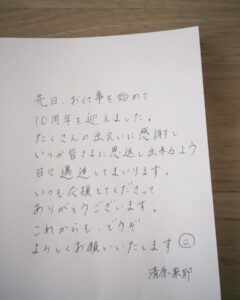 先日、お仕事を始めて
10周年を迎えました。
たくさんの出会いに感謝し
いつか皆さまに恩返し出来るよう
日々邁進してまいります。
いつも応援してくださって
ありがとうございます。
これからも、どうぞ
よろしくお願いいたします
清原果耶